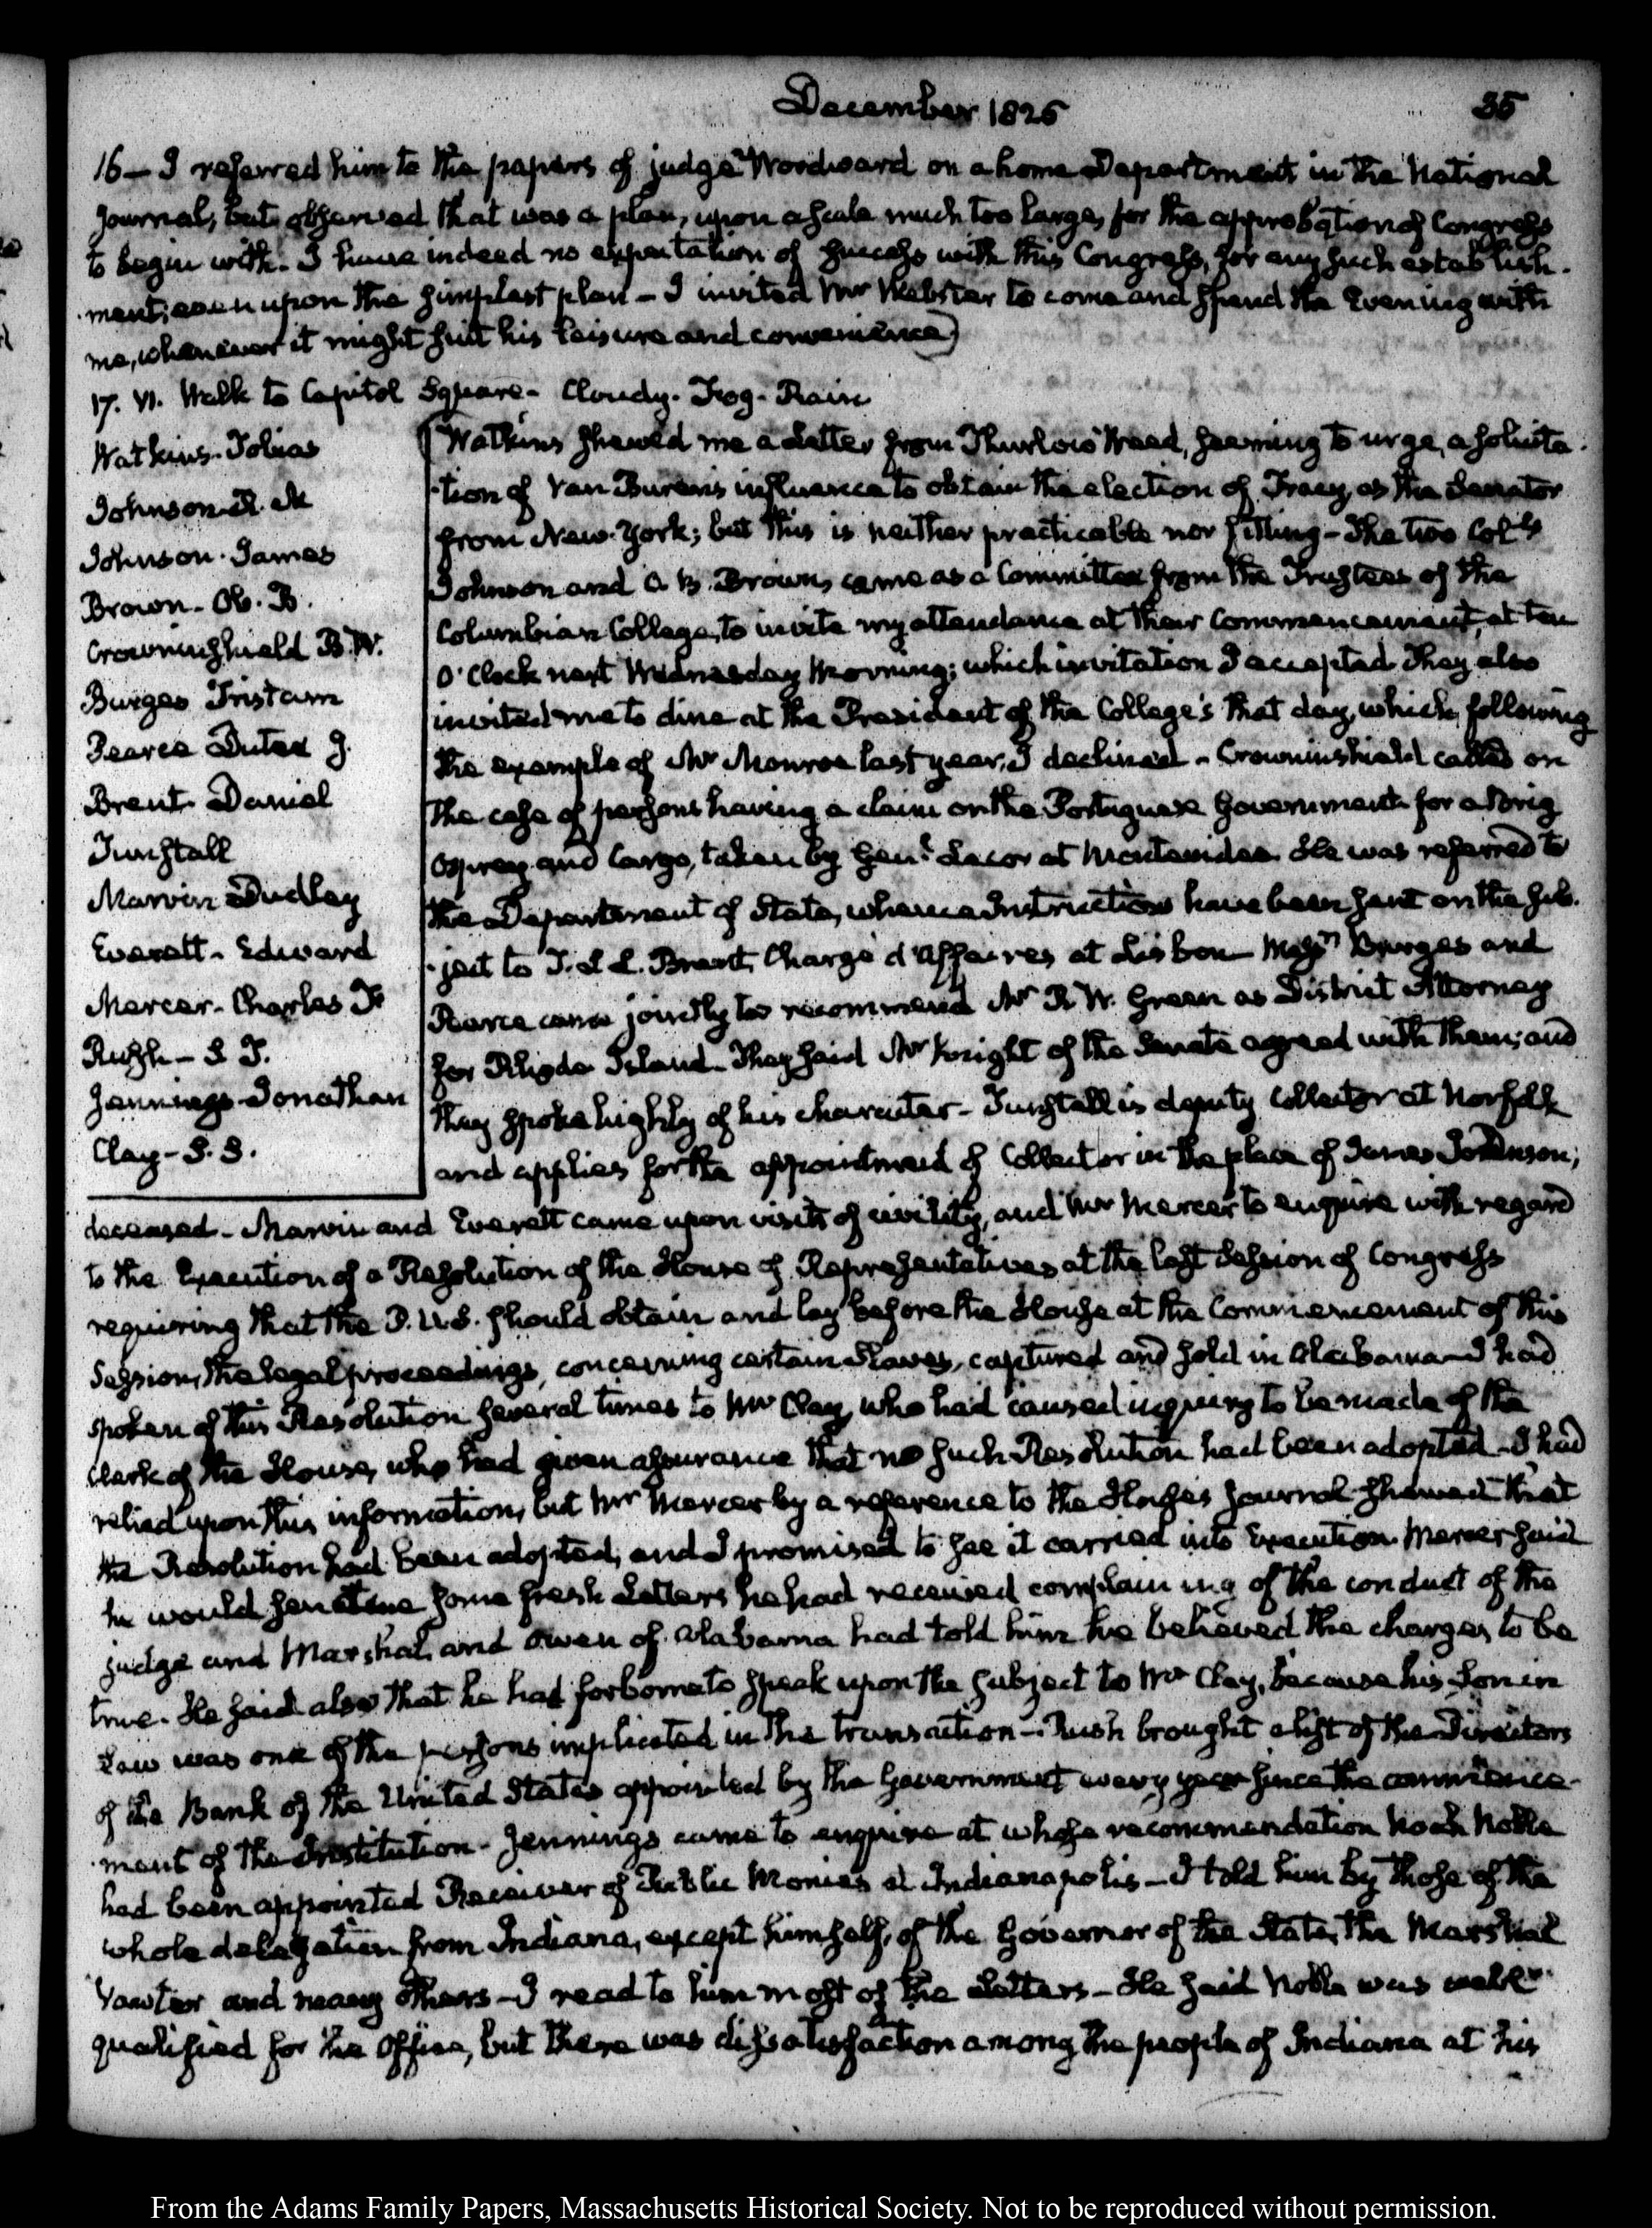 December 1825
35
16 — I referred him to the papers of judge Woodward on a home Department in the National
Journal, but observed that was a plan, upon a scale much too large, for the approbation of Congress
to begin with. I have indeed no expectation of success with this Congress, for any such establish-
ment, even upon the simplest plan — I invited Mr Webster to come and spend the Evening with
me, whenever it might suit his leisure and convenience)
17. VI. Walk to Capitol Square — Cloudy. Fog. Rain
Watkins. Tobias
Johnson R. M
Johnson. James
Brown. Ob. B.
Crowninshield B. W.
Burges Tristam
Pearce Dutee J.
Brent Daniel
Tunstall
Marvin Dudley
Everett. Edward
Mercer. Charles F
Rush — S T.
Jennings Jonathan
Clay — S. S.
(Watkins shewed me a Letter from Thurlow Weed, seeming to urge, a solicita-
-tion of Van Buren's influence to obtain the election of Tracy, as the Senator
from New-York; but this is neither practicable nor fitting — The two Col.ls
Johnson and O. B. Brown, came as a Committee from the Trustees of the
Columbian College, to invite my attendance at their Commencement, at ten
O'Clock next Wednesday Morning; which invitation I accepted. They also
invited me to dine at the President of the College's that day, which, following
the example of Mr Monroe last year, I declined — Crowninshield called on
the case of persons having a claim on the Portuguese Government for a Brig
Osprey and Cargo, taken by Genl. Lecor at Montevideo. He was referred to
the Department of State, whence Instructions have been sent on the sub-
-ject to T. L. L. Brent, Chargé d'Affaires at Lisbon — Messrs Burges and
Pearce came jointly to recommend Mr R. W. Green as District Attorney
for Rhode Island. They said Mr Knight of the Senate agreed with them; and
they spoke highly of his character — Tunstall is deputy Collector at Norfolk
and applies for the appointment of Collector in the place of James Johnson,
deceased — Marvin and Everett came upon visits of civility, and Mr Mercer to enquire with regard
to the Execution of a Resolution of the House of Representatives at the last Session of Congress
requiring that the P. U. S. should obtain and lay before the House at the Commencement of this
Session, the legal proceedings, concerning certain Slaves, captured and sold in Alabama — I had
spoken of this Resolution several times to Mr Clay, who had caused inquiry to be made of the
Clerk of the House, who had given assurance that no such Resolution had been adopted — I had
relied upon this information, but Mr Mercer by a reference to the House's Journal shewed that
the Resolution had been adopted, and I promised to see it carried into Execution. Mercer said
he would send me some fresh Letters he had received complaining of the conduct of the
judge and Marshal, and Owen of Alabama had told him he believed the charges to be
true. He said also that he had forborne to speak upon the subject to Mr Clay, because his Son in
Law was one of the persons implicated in the transaction — Rush brought a list of the Directors
of the Bank of the United States appointed by the Government every year since the commence-
-ment of the Institution — Jennings came to enquire at whose recommendation Noah Noble
had been appointed Receiver of Public Monies at Indianapolis — I told him by those of the
whole delegation from Indiana, except himself, of the Governor of the State, the Marshal
Vawter and many others — I read to him most of the Letters — He said Noble was well
qualified for the Office, but there was dissatisfaction among the people of Indiana at his
From the Adams Family Papers, Massachusetts Historical Society. Not to be reproduced without permission.